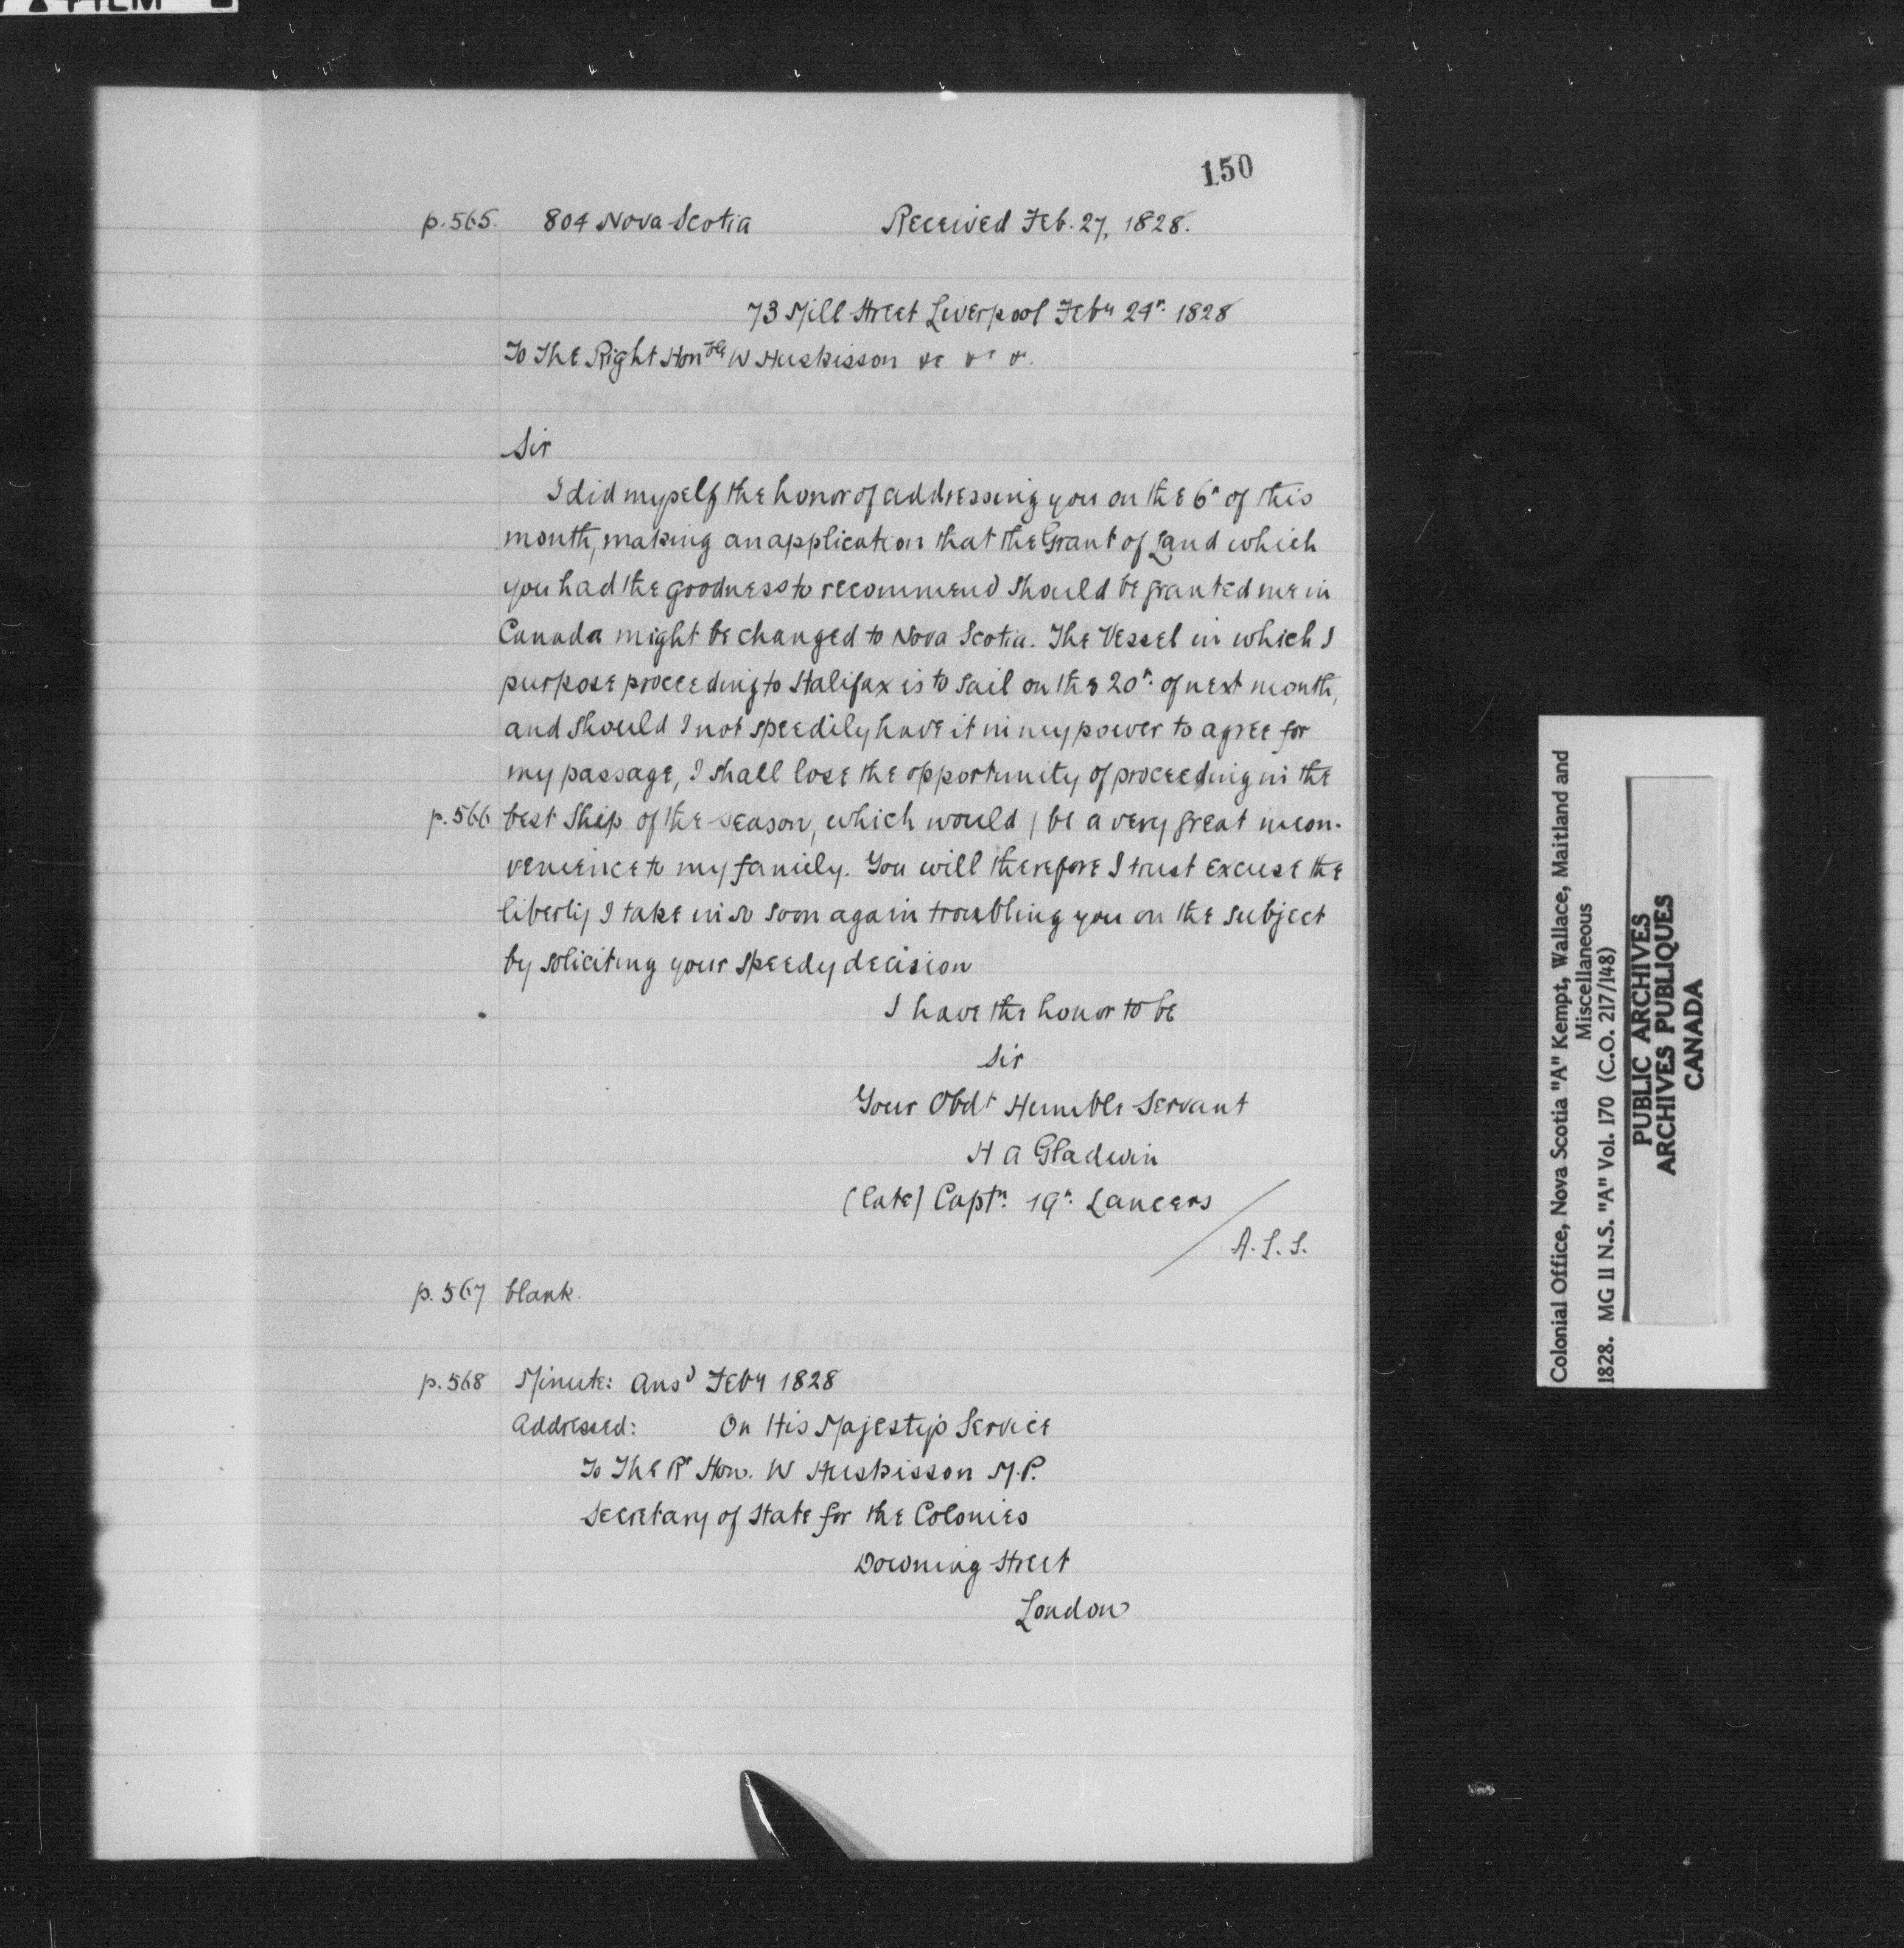 150
p.565. 804 Nova Scotia Received Feb. 27, 1828.
73 Mill Street Liverpool Feby 24th 1828
To The Right Honble W Huskisson &c &c &c.
Sir
I did myself the honor of addressing you on the 6th of this
month, making an application that the Grant of Land which
you had the goodness to recommend should be granted me in
Canada might be changed to Nova Scotia. The Vessel in which I
purpose proceeding to Halifax is to sail on the 20th of next month,
and should I not speedily have it in my power to agree for
my passage, I shall lose the opportunity of proceeding in the
p.566 best Ship of the season, which would / be a very great incon-
venience to my family. You will therefore I trust excuse the
liberty I take in so soon again troubling you on the subject
by soliciting your speedy decision
I have the honor to be
Sir
Your Obdt Humble Servant
H A Gladwin
(late) Captn. 19th Lancers
A.L.S.
p.567 blank.
p.568 Minute: Ansd Feby 1828
Addressed: On His Majesty's Service
To The Rt Hon. W Huskisson M.P.
Secretary of State for the Colonies
Downing Street
London
Colonial Office, Nova Scotia "A" Kempt, Wallace, Maitland and
Miscellaneous
1828. MG 11 N.S. "A" Vol. 170 (C.O. 217/148)
PUBLIC ARCHIVES
ARCHIVES PUBLIQUES
CANADA